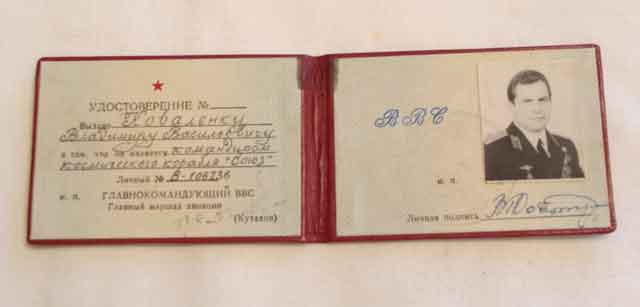 УДОСТОВЕРЕНИЕ №
Выдано Коваленку
Владимиру Васильевичу
в том, что он является командиром
космического корабля "Союз"
Личный № В-106236
м. п. ГЛАВНОКОМАНДУЮЩИЙ ВВС
Главный маршал авиации
(Кутахов)
ВВС
м. п.
Личная подпись